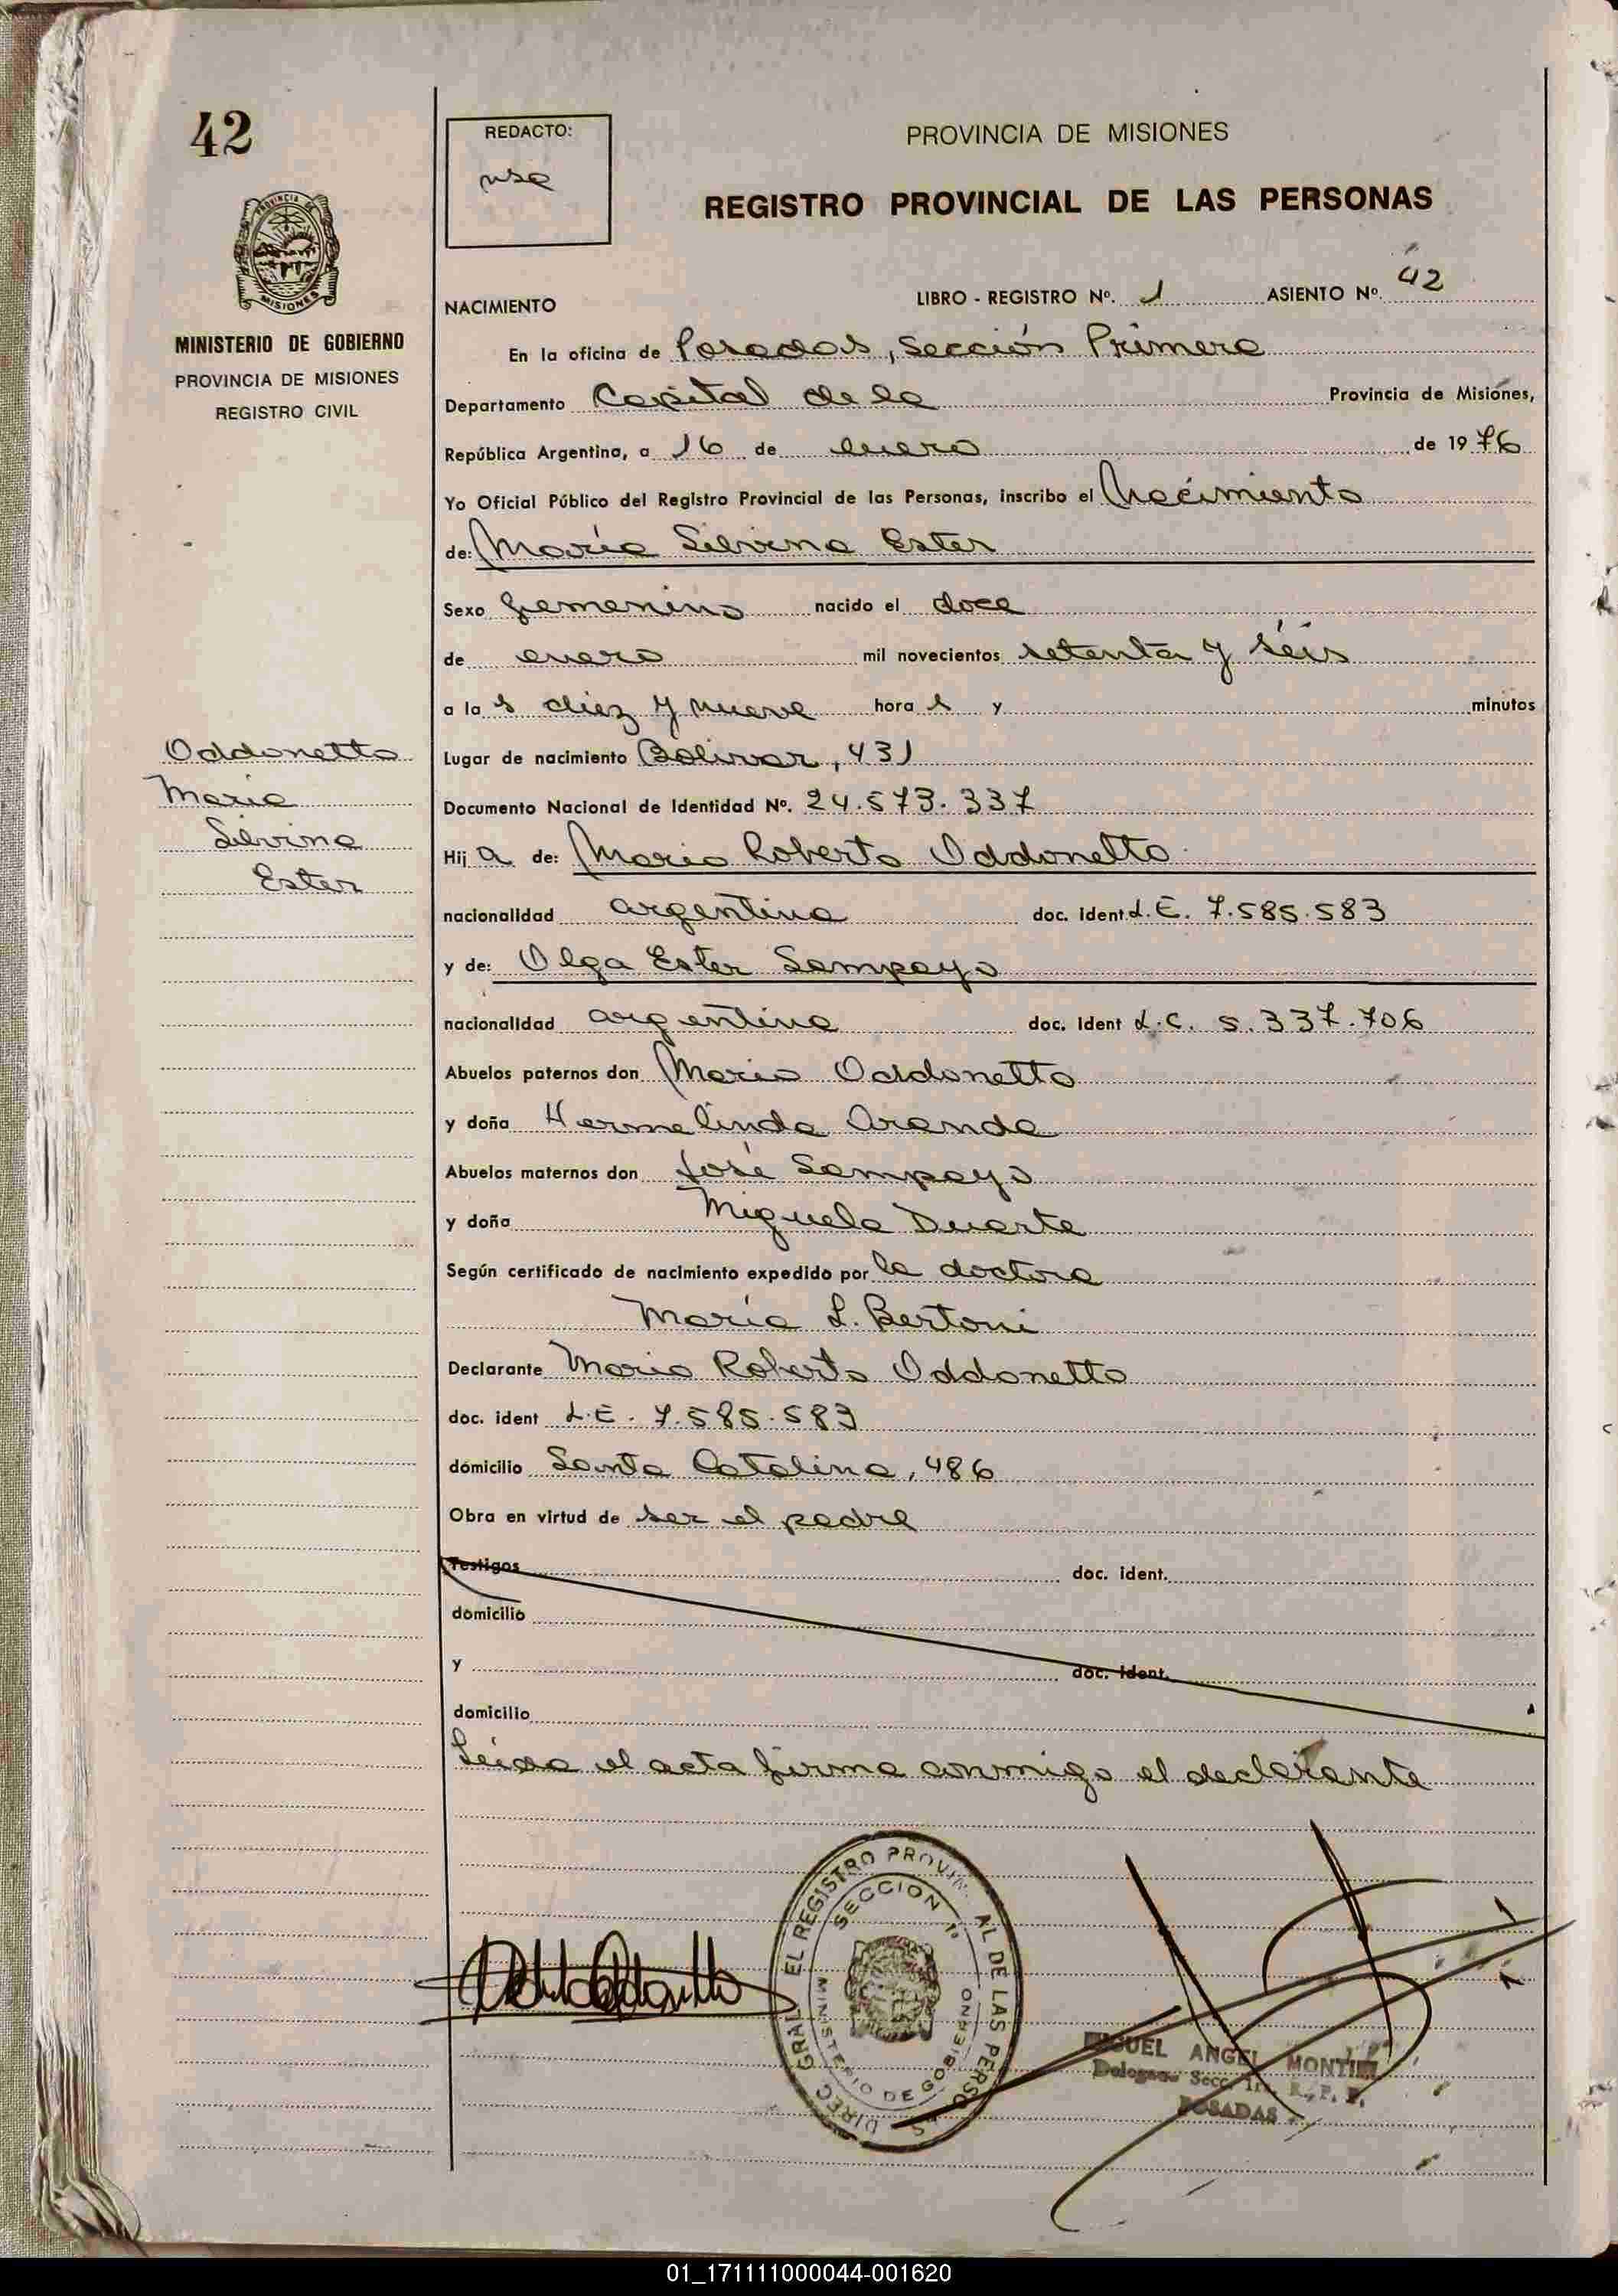 42
REDACTO:
PROVINCIA DE MISIONES
REGISTRO PROVINCIAL DE LAS PERSONAS
PROVINCIA DE
MISIONES
MINISTERIO DE GOBIERNO
PROVINCIA DE MISIONES
REGISTRO CIVIL
NACIMIENTO LIBRO - REGISTRO Nº. 1 ASIENTO Nº. 42
En la oficina de Posadas, Sección Primera
Departamento Capital de la Provincia de Misiones,
República Argentina, a 16 de enero de 1976
Yo Oficial Público del Registro Provincial de las Personas, inscribo el Nacimiento
de: María Silvina Ester
Sexo femenino nacido el doce
de enero mil novecientos setenta y séis
a la s diez y nueve hora s y minutos
Lugar de nacimiento Bolivar, 431
Documento Nacional de Identidad Nº. 24.573.337
Oddonetto
María
Silvina
Ester
Hij a de: Mario Roberto Oddonetto
nacionalidad argentina doc. ident. L.E. 7.585.583
y de: Olga Ester Sampayo
nacionalidad argentina doc. Ident L.C. 5.337.706
Abuelos paternos don Mario Oddonetto
y doña Hermelinda Aranda
Abuelos maternos don José Sampayo
y doña Miguela Duarte
Según certificado de nacimiento expedido por la doctora
María L. Bertoni
Declarante Mario Roberto Oddonetto
doc. ident L.E. 7.585.583
domicilio Santa Catalina, 486
Obra en virtud de ser el padre
Testigos doc. ident.
domicilio
y doc. ident.
domicilio
Leida el acta firma conmigo el declarante
DIREC. GRAL EL REGISTRO PROVIN AL DE LAS PERSO S
SECCION 1ª
MINISTERIO DE GOBIERNO
MIGUEL ANGEL MONTIEL
Secc. 1ra. R. P. P.
POSADAS
01_171111000044-001620